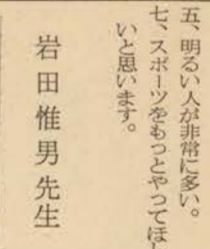 五、明るい人が非常に多い。
七、スポーツをもっとやってほし
いと思います。
岩田惟男先生